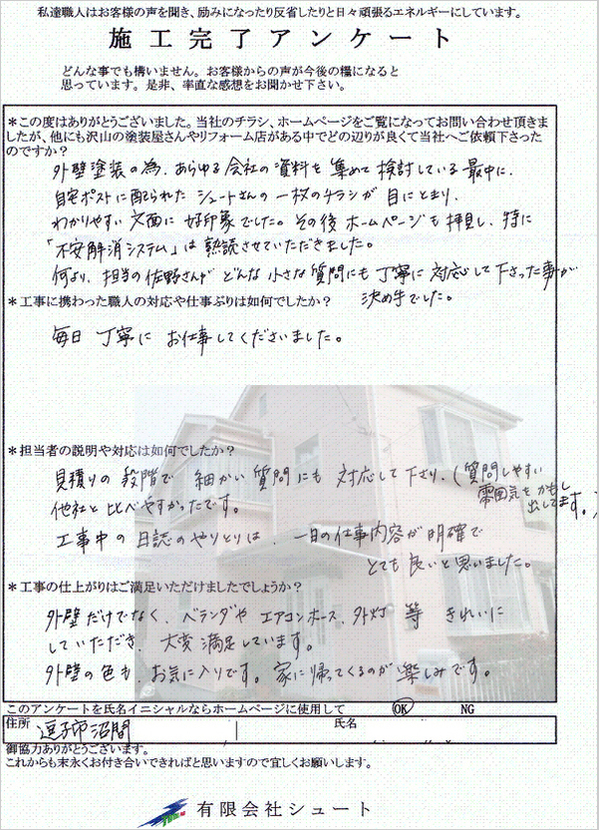 私達職人はお客様の声を聞き、励みになったり反省したりと日々頑張るエネルギーにしています。
施工完了アンケート
どんな事でも構いません。お客様からの声が今後の糧になると
思っています。是非、率直な感想をお聞かせ下さい。
＊この度はありがとうございました。当社のチラシ、ホームページをご覧になってお問い合わせ頂きま
したが、他にも沢山の塗装屋さんやリフォーム店がある中でどの辺りが良くて当社へご依頼下さった
のですか？
外壁塗装の為、あらゆる会社の資料を集めて検討している最中に、
自宅ポストに配られたシュートさんの一枚のチラシが目にとまり、
わかりやすい文面に好印象でした。その後ホームページも拝見し、特に
「不安解消システム」は熟読させていただきました。
何より、担当の佐野さんがどんな小さな質問にも丁寧に対応して下さった事が
決め手でした。
＊工事に携わった職人の対応や仕事ぶりは如何でしたか？
毎日丁寧にお仕事してくださいました。
＊担当者の説明や対応は如何でしたか？
見積りの段階で細かい質問にも対応して下さり、（質問しやすい
雰囲気をかもし
出してます。）
他社と比べやすかったです。
工事中の日誌のやりとりは、一日の仕事内容が明確で
とても良いと思いました。
＊工事の仕上がりはご満足いただけましたでしょうか？
外壁だけでなく、ベランダやエアコンホース、外灯等きれいに
していただき、大変満足しています。
外壁の色も、お気に入りです。家に帰ってくるのが楽しみです。
このアンケートを氏名イニシャルならホームページに使用して OK NG
住所 逗子市沼間 氏名
御協力ありがとうございます。
これからも末永くお付き合いできればと思いますので宜しくお願いします。
有限会社シュート